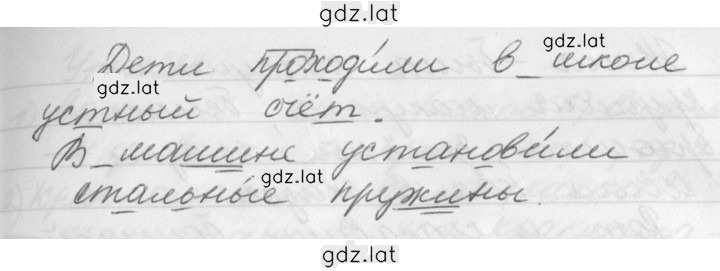 gdz.lat
Дети проходили в школе
gdz.lat
gdz.lat
устный счёт.
В машине установили
gdz.lat
стальные пружины.
gdz.lat